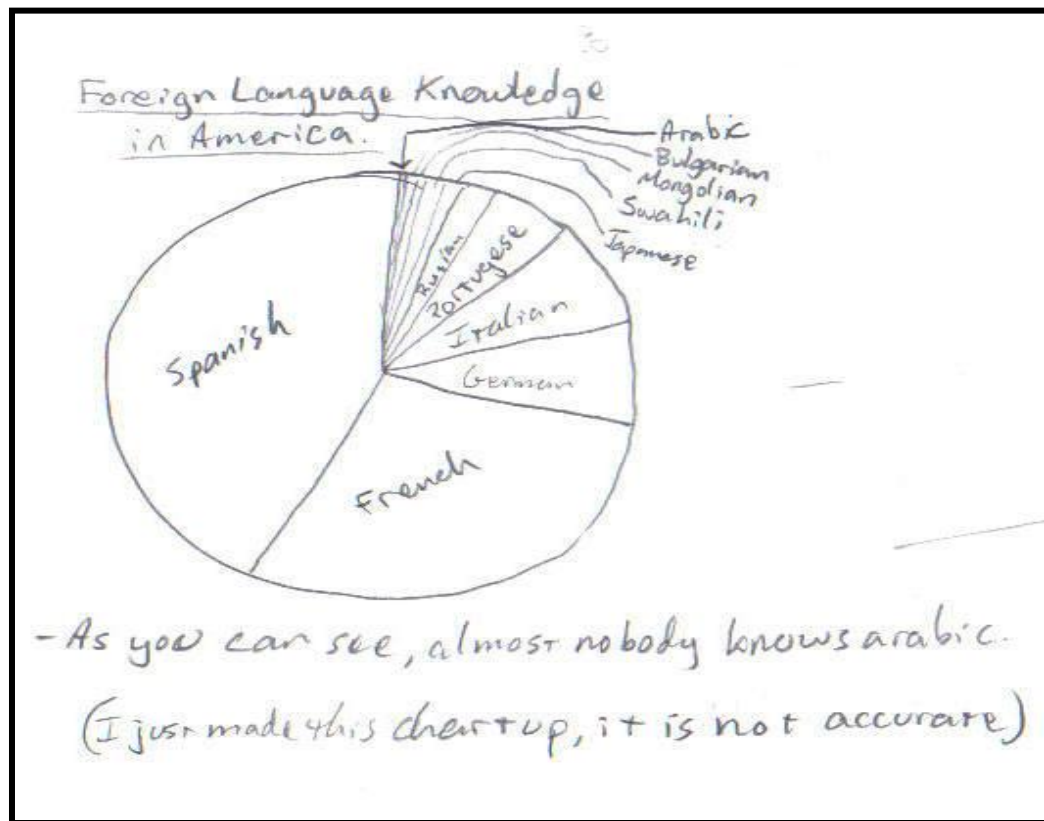 Foreign Language Knowledge
in America.
Arabic
Bulgarian
Mongolian
Swahili
Japanese
Russian
Portugese
Italian
German
Spanish
French
- As you can see, almost nobody knows arabic.
(I just made this chart up, it is not accurate)